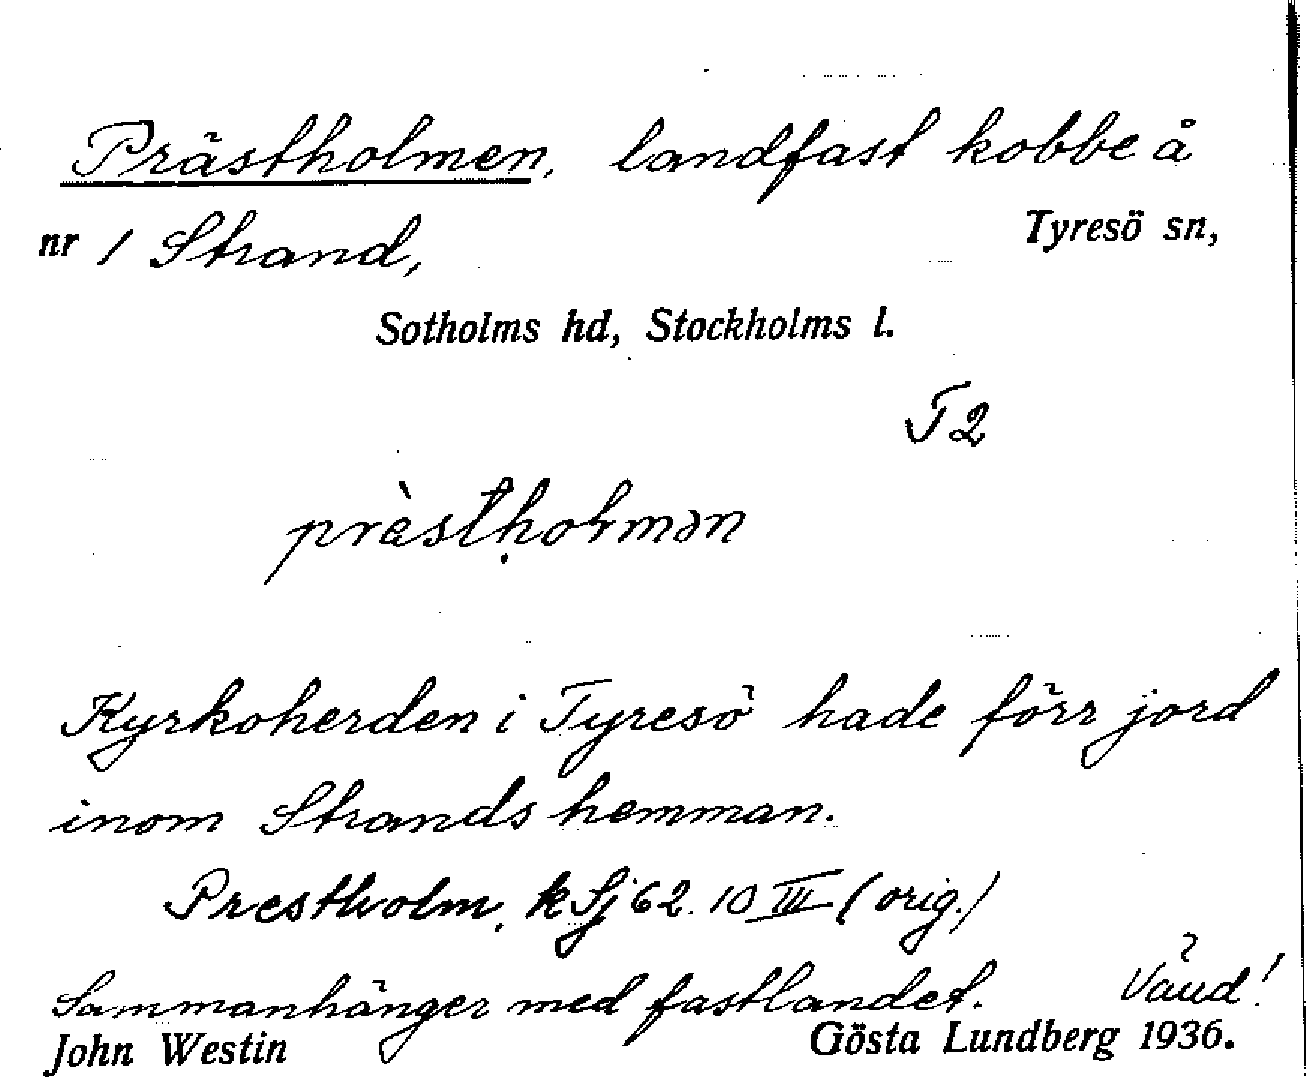 Prästholmen, landfast kobbe å
nr 1 Strand, Tyresö sn,
Sotholms hd, Stockholms l.
T2
Kyrkoherden i Tyresö hade förr jord
inom Strands hemman.
Prestholm. k Sj 62. 10 III (orig.)
Sammanhänger med fastlandet. Vänd!
John Westin Gösta Lundberg 1936.